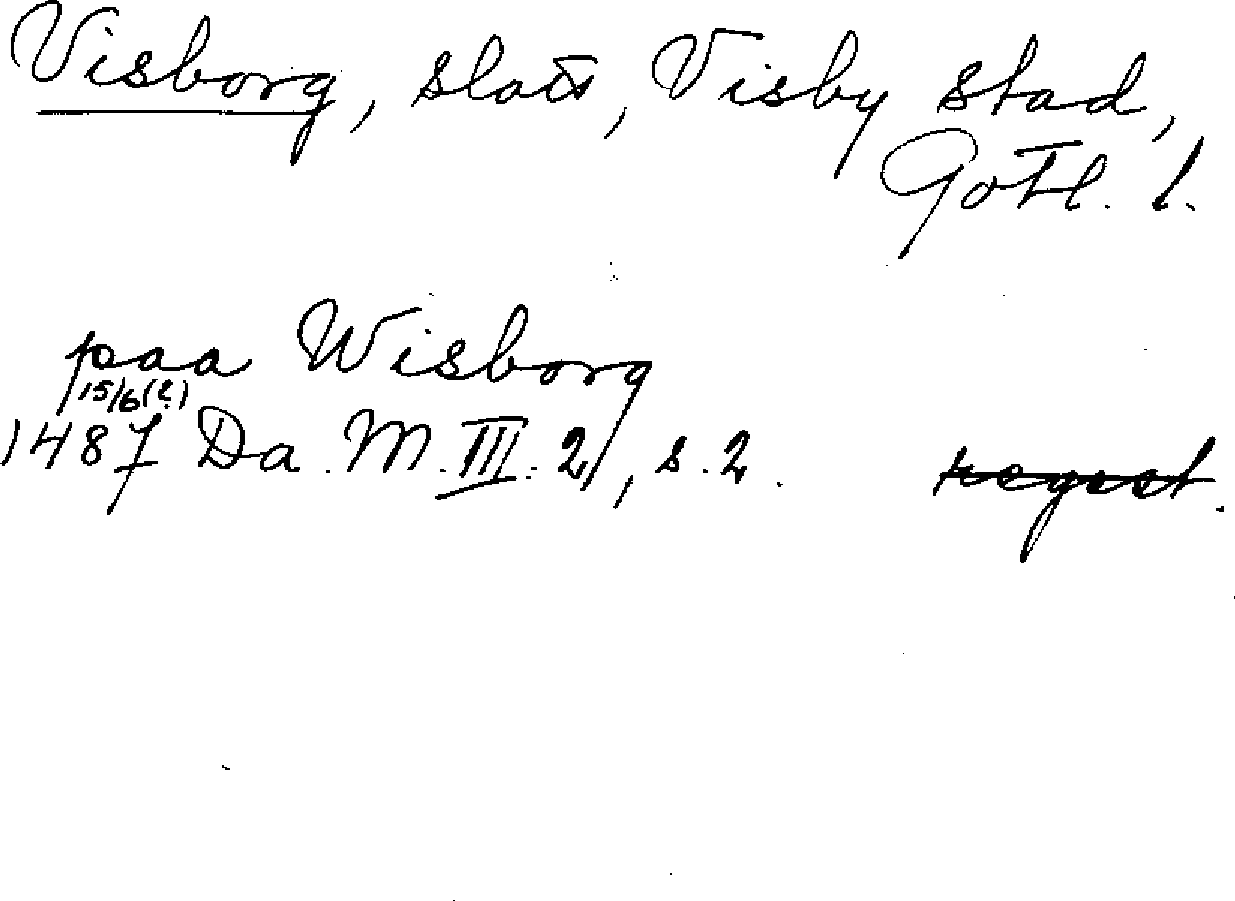 Visborg, slott, Visby stad,
Gotl. l.
paa Wisborg
15/6(?)
1487 Da. M. III. 2, s. 2.
regest.